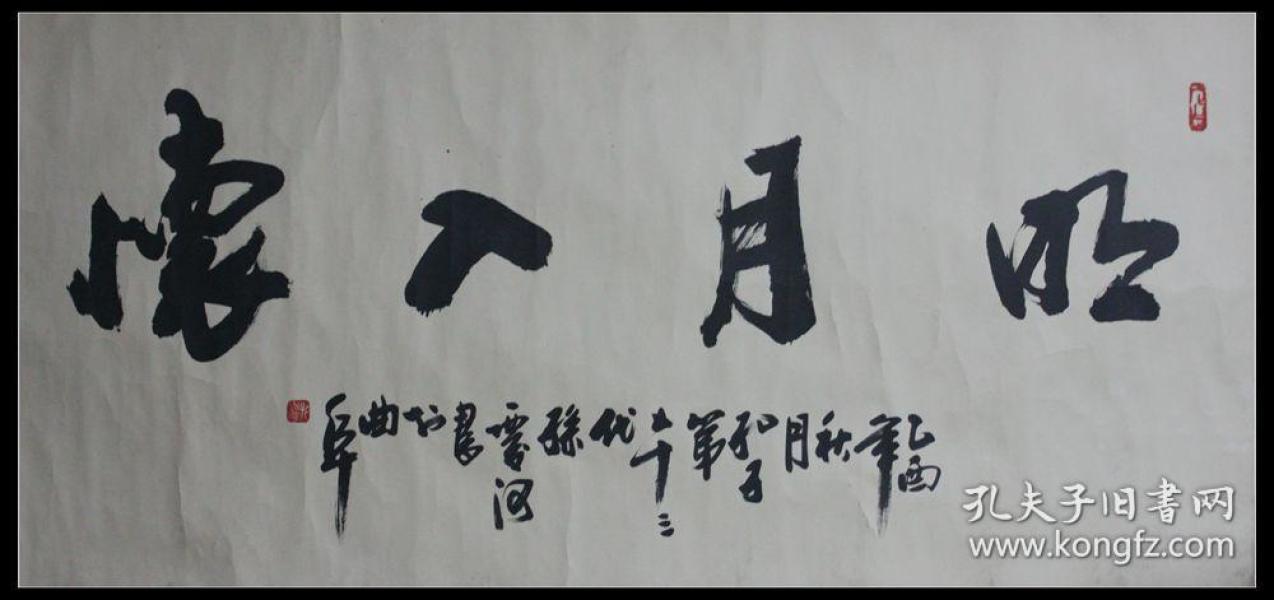 明月入懷
乙酉年秋月孔子第五十三代孫雲河書於曲阜
孔夫子旧書网
www.kongfz.com